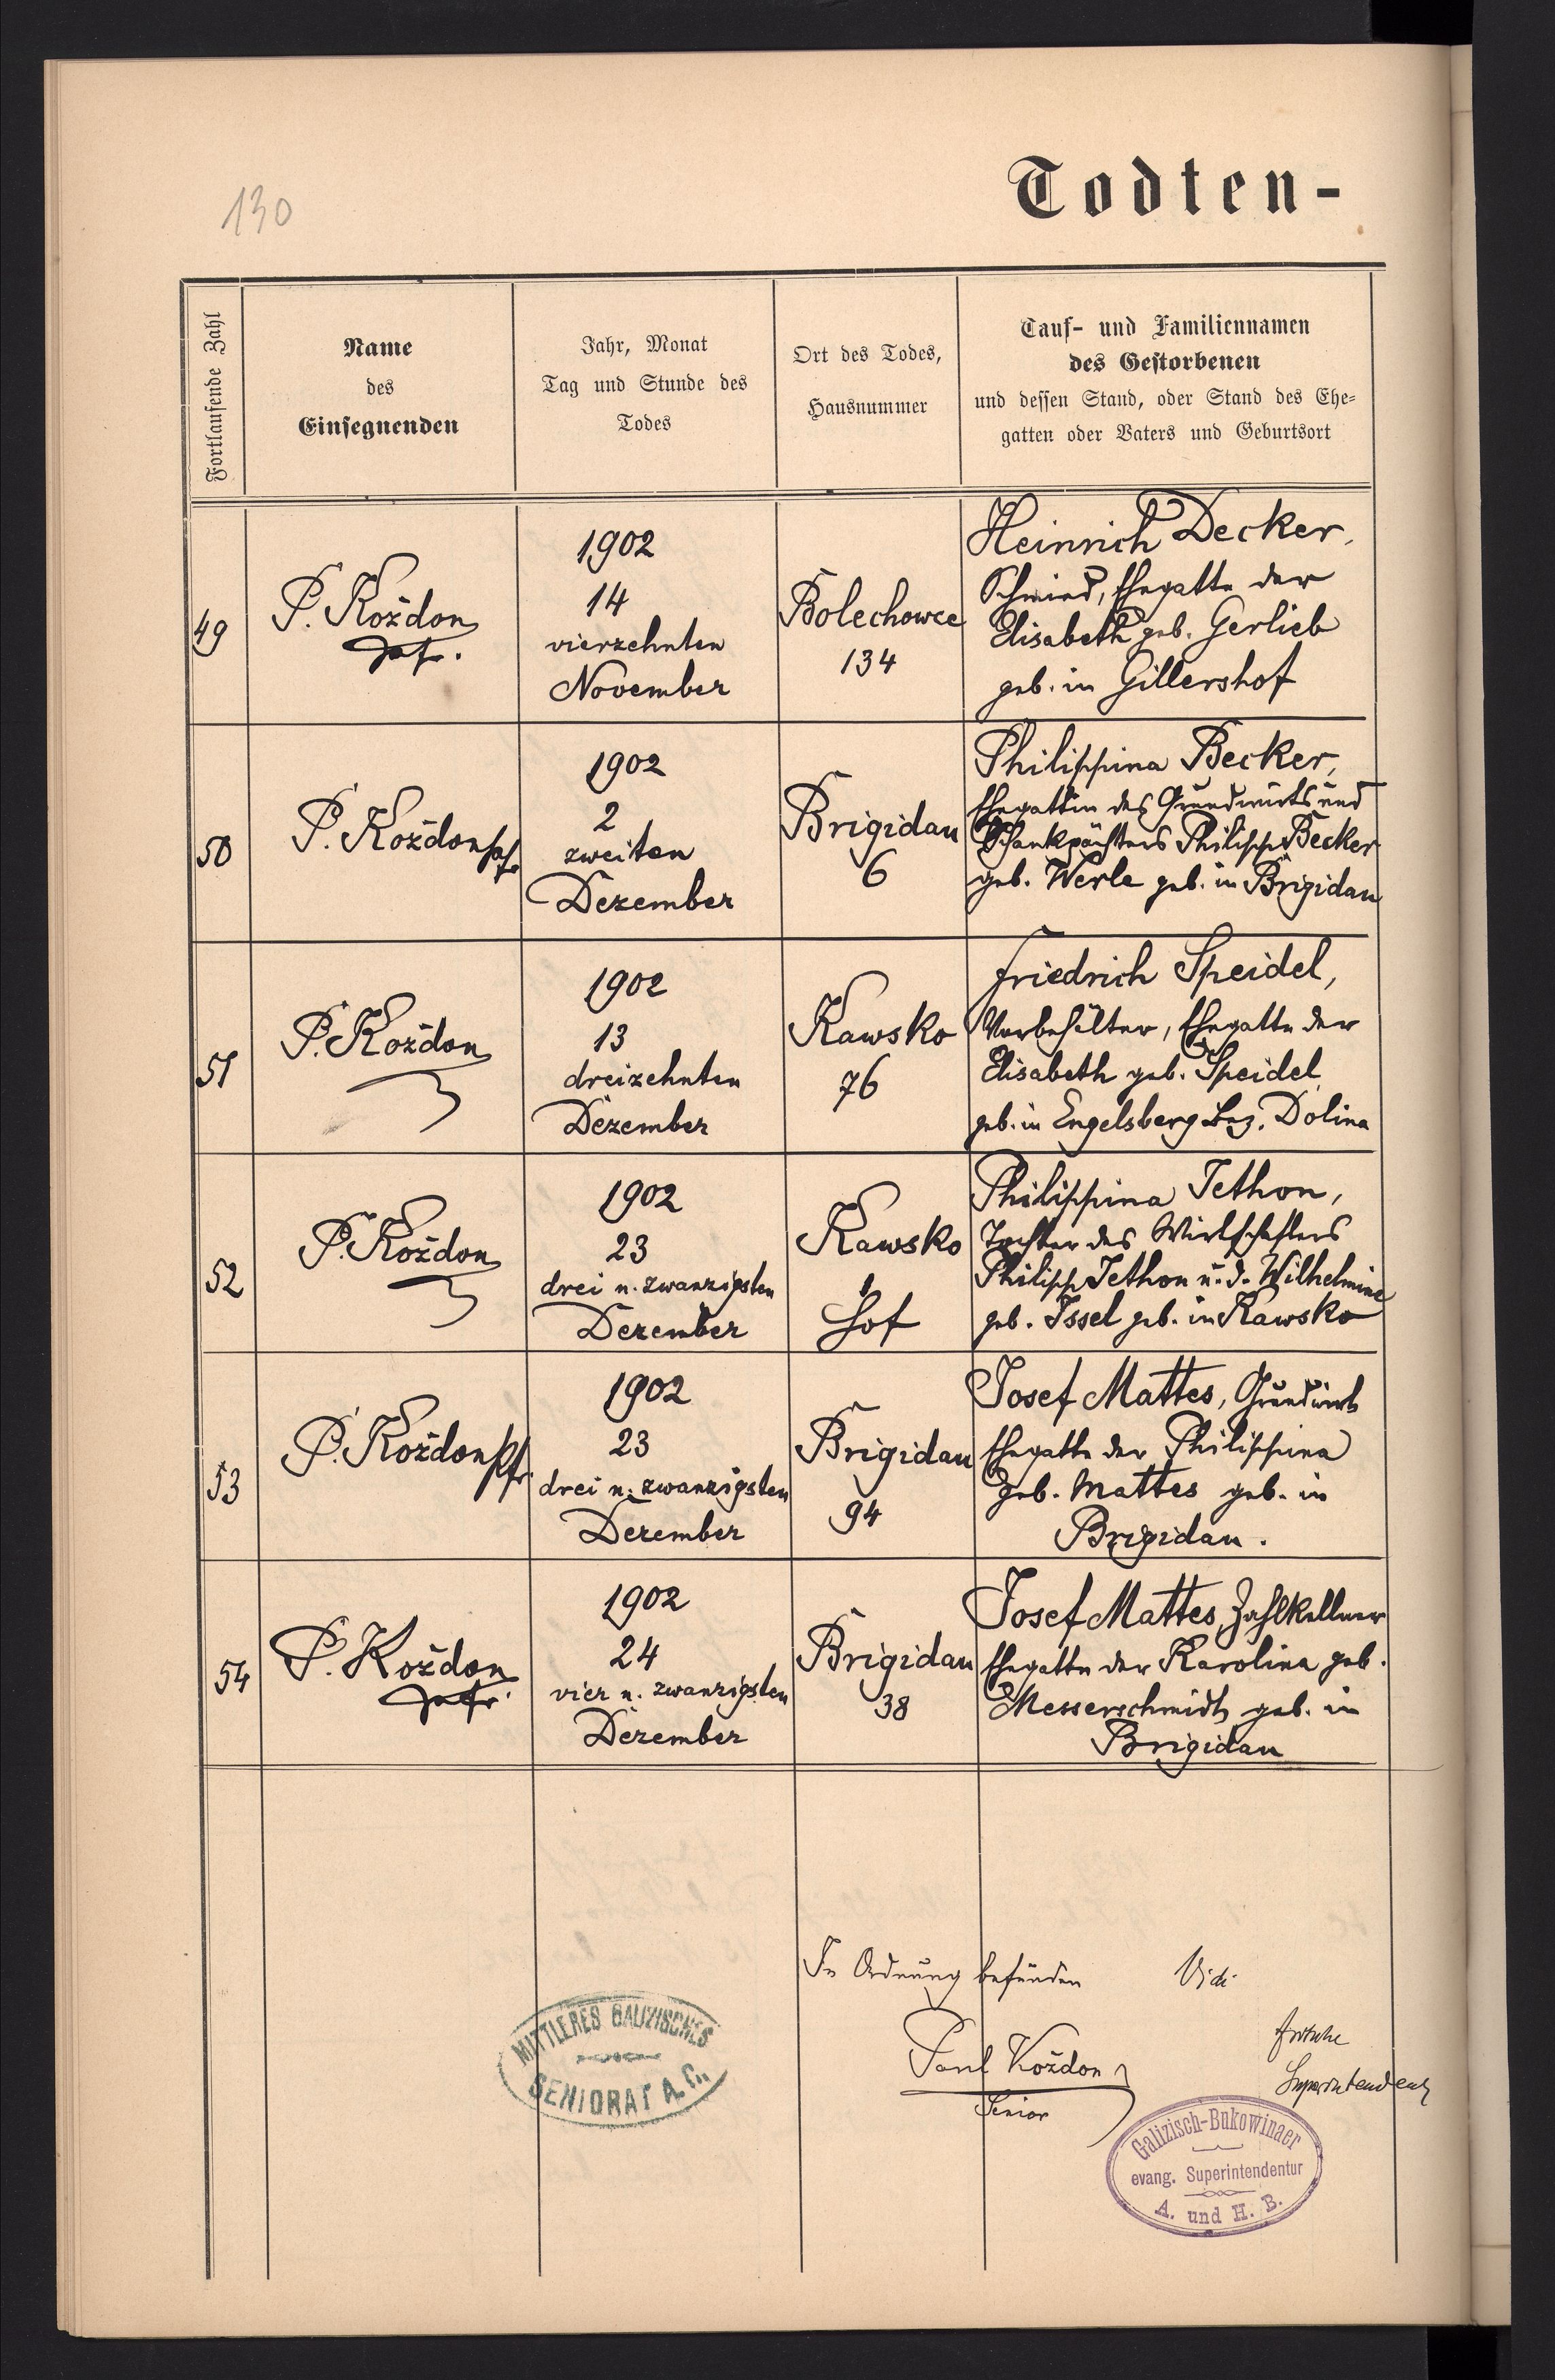 130
Todten-
Fortlaufende Zahl
Name
des
Einsegnenden
Jahr, Monat
Tag und Stunde des
Todes
Ort des Todes,
Hausnummer
Tauf- und Familiennamen
des Gestorbenen
und dessen Stand, oder Stand des Ehe-
gatten oder Vaters und Geburtsort
49
P. Kożdon
Pfr.
1902
14
vierzehnten
November
Bolechowce
134
Heinrich Decker,
Schmied, Ehegatte der
Elisabeth geb. Gerlieb
geb. in Gillershof
50
P. Kożdon Pfr
1902
2
zweiten
Dezember
Brigidau
6
Philippina Becker,
Ehegattin des Grundwirts und
Schankpächters Philipp Becker
geb. Werle geb. in Brigidau
51
P. Kożdon
1902
13
dreizehnten
Dezember
Kawsko
76
Friedrich Speidel,
Vorbehälter, Ehegatte der
Elisabeth geb. Speidel
geb. in Engelsberg Bez. Dolina
52
P. Kożdon
1902
23
drei u. zwanzigsten
Dezember
Kawsko
Hof
Philippina Jethon,
Tochter des Wirtschafters
Philipp Jethon u. d. Wilhelmine
geb. Issel geb. in Kawsko
53
P. Kożdon Pfr
1902
23
drei u. zwanzigsten
Dezember
Brigidau
94
Josef Mattes, Grundwirt
Ehegatte der Philippina
geb. Mattes geb. in
Brigidau.
54
P. Kożdon
Pfr.
1902
24
vier u. zwanzigsten
Dezember
Brigidau
38
Josef Mattes, Zahlkellner
Ehegatte der Karolina geb.
Messerschmidt geb. in
Brigidau
In Ordnung befunden
Vidi
Paul Kożdon
Senior
Fritsche
Superintendent
MITTLERES GALIZISCHES
SENIORAT A. C.
Galizisch-Bukowinaer
evang. Superintendentur
A. und H. B.